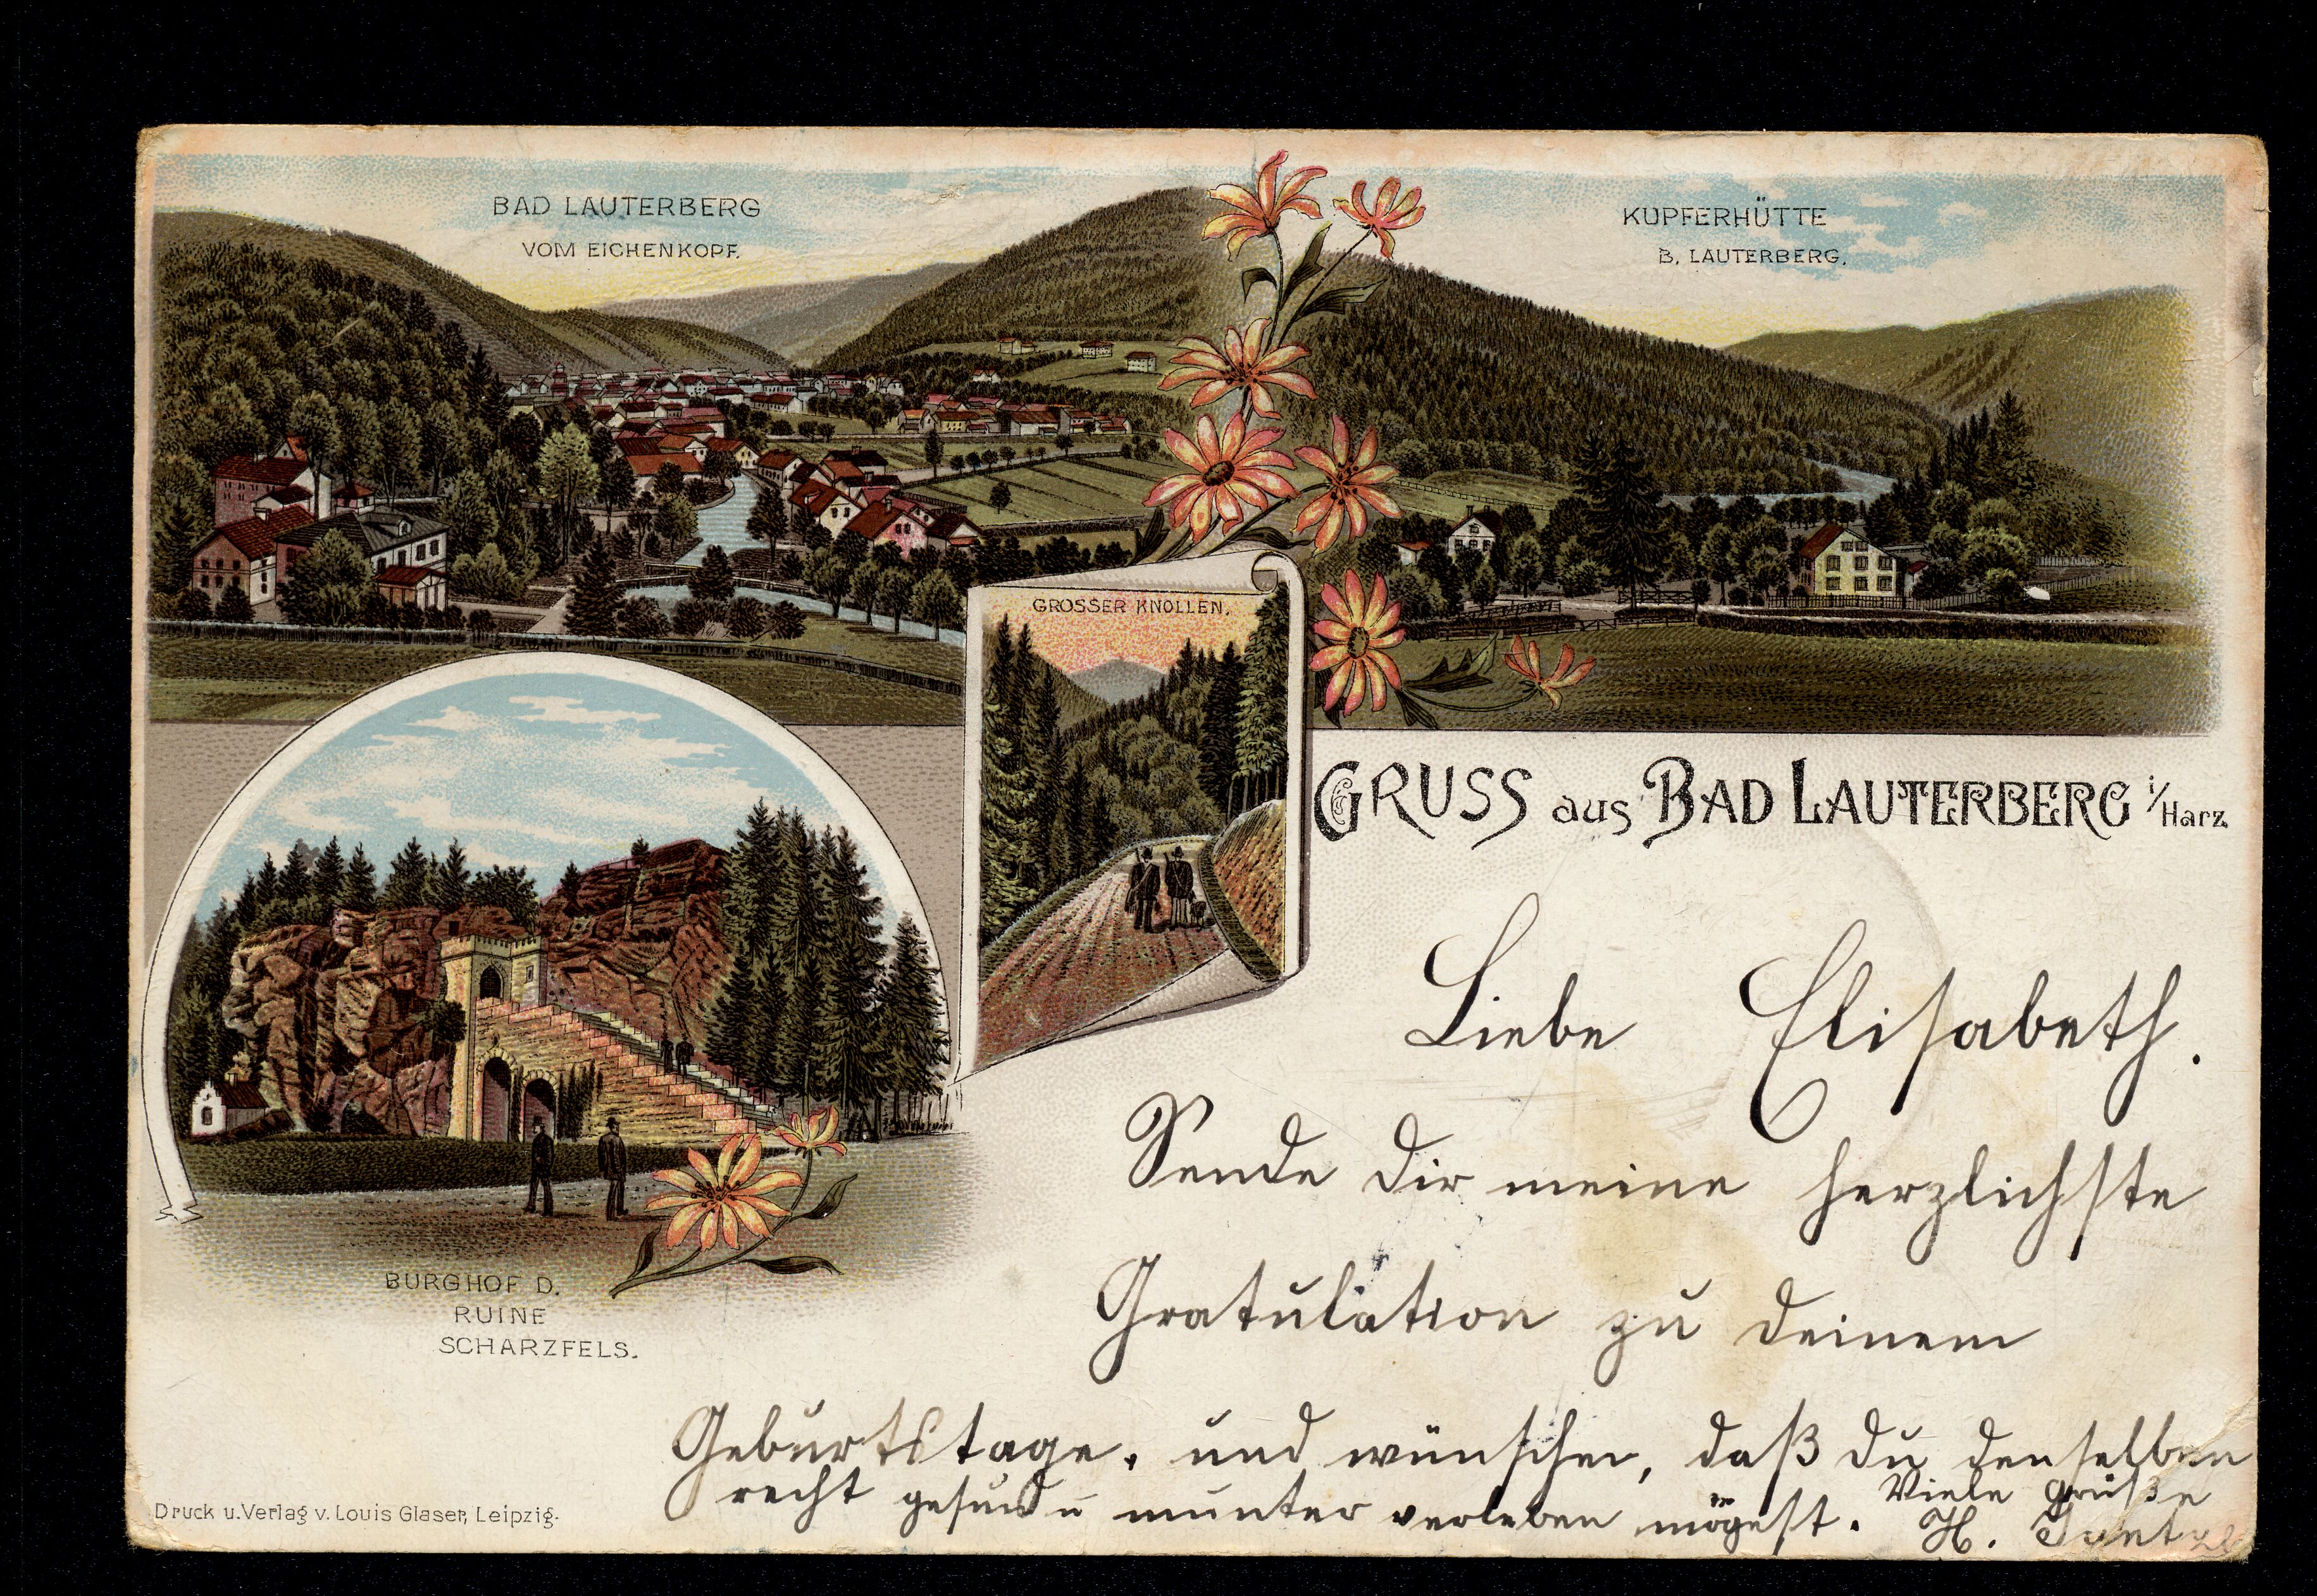 BAD LAUTERBERG
VOM EICHENKOPF.
KUPFERHÜTTE
B. LAUTERBERG.
GROSSER KNOLLEN.
GRUSS aus BAD LAUTERBERG i/Harz
Liebe Elisabeth.
Sende dir meine herzlichste
Gratulation zu deinem
Geburtstage, und wünsche, daß du denselben
recht gesund u munter verleben mögest.
Viele Grüße
H.
BURGHOF D.
RUINE
SCHARZFELS.
Druck u. Verlag v. Louis Glaser, Leipzig.